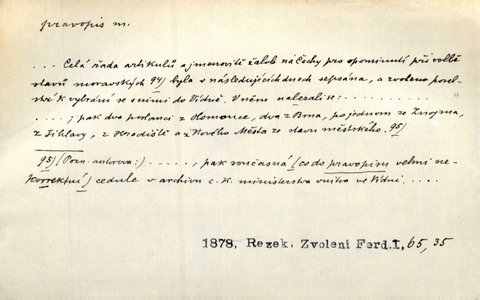 pravopis m.
... Celá řada artikulů a jmenovitě žalob na Čechy pro opominutí při volbě
stavů moravských 94) byla v následujících dnech sepsána, a zvoleno posel-
ství k vybrání se s nimi do Vídně. V něm nalezali se: ........
........; pak dva poslanci z Olomouce, dva z Brna, po jednom ze Znojma,
z Jihlavy, z Hradiště a z Nového Města ze stavu městského. 95)
95) (Pozn. autorova:) ....., pak současná (co do pravopisu velmi ne-
korrektní) cedule v archivu c. k. ministerstva vnitra ve Vídni. ....
1878, Rezek. Zvolení Ferd. I, 65, 35